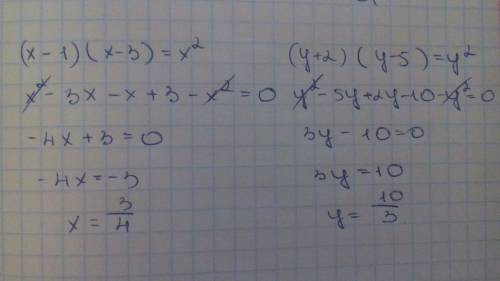 (x-1)(x-3)=x²
x² - 3x - x + 3 - x² = 0
-4x+3=0
-4x=-3
x = 3/4
(y+2)(y-5)=y²
y² - 5y + 2y - 10 - y² = 0
3y - 10 = 0
3y = 10
y = 10/3